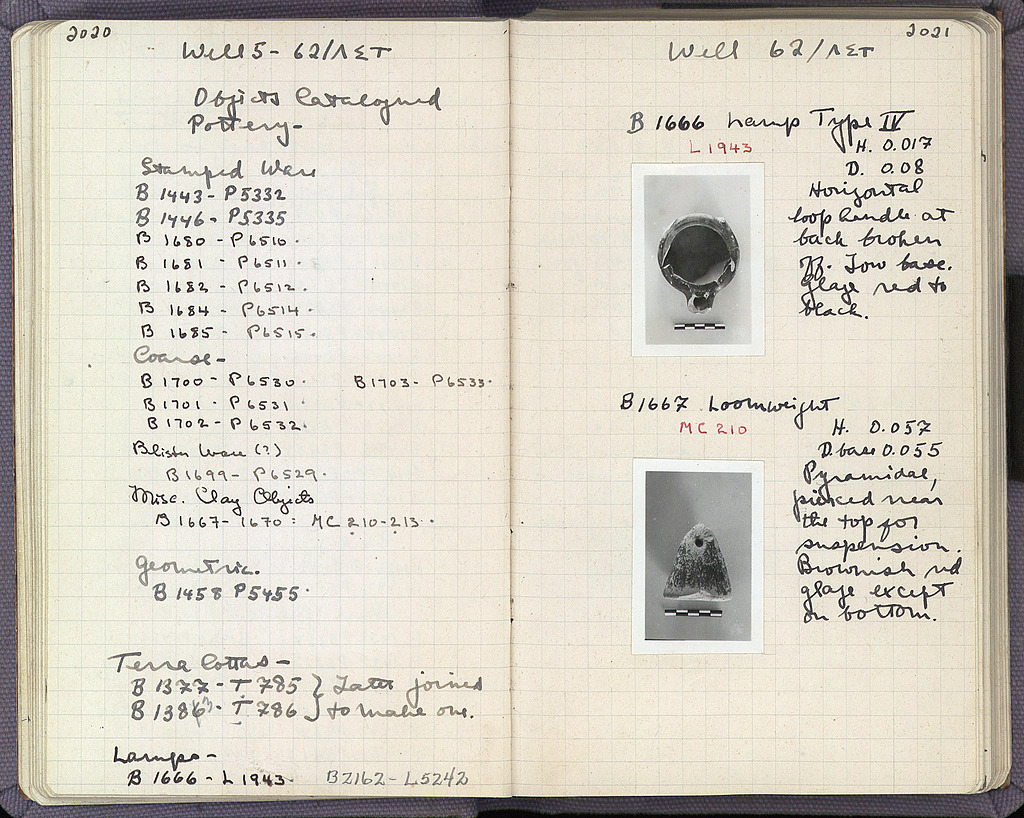 2020
Well 5 - 62/ΛΣΤ
Objects Catalogued
Pottery-
Stamped Ware
B 1443 - P5332
B 1446 - P5335
B 1680 - P6510.
B 1681 - P6511.
B 1682 - P6512.
B 1684 - P6514.
B 1685 - P6515.
Coarse-
B 1700 - P6530. B1703 - P6533.
B 1701 - P6531
B 1702 - P6532.
Blister Ware (?)
B 1699 - P6529.
Misc. Clay Objects
B 1667-1670: MC 210-213.
Geometric.
B 1458 P5455.
Terra Cottas-
B 1377 - T 785 } Later joined
B 1386 - T 786 } to make one.
Lamps-
B 1666 - L 1943. B2162 - L5242
2021
Well 62/ΛΣΤ
B 1666 Lamp Type IV
L 1943
H. 0.017
D. 0.08
Horizontal
loop handle at
back broken
off. Low base.
Glaze red to
black.
B 1667 Loomweight
MC 210
H. 0.057
D. base 0.055
Pyramidal,
pierced near
the top for
suspension.
Brownish red
glaze except
on bottom.